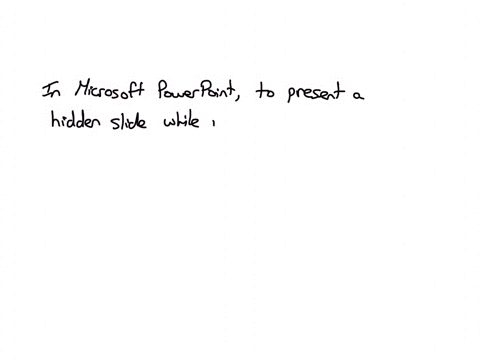 In Microsoft PowerPoint, to present a
hidden slide while